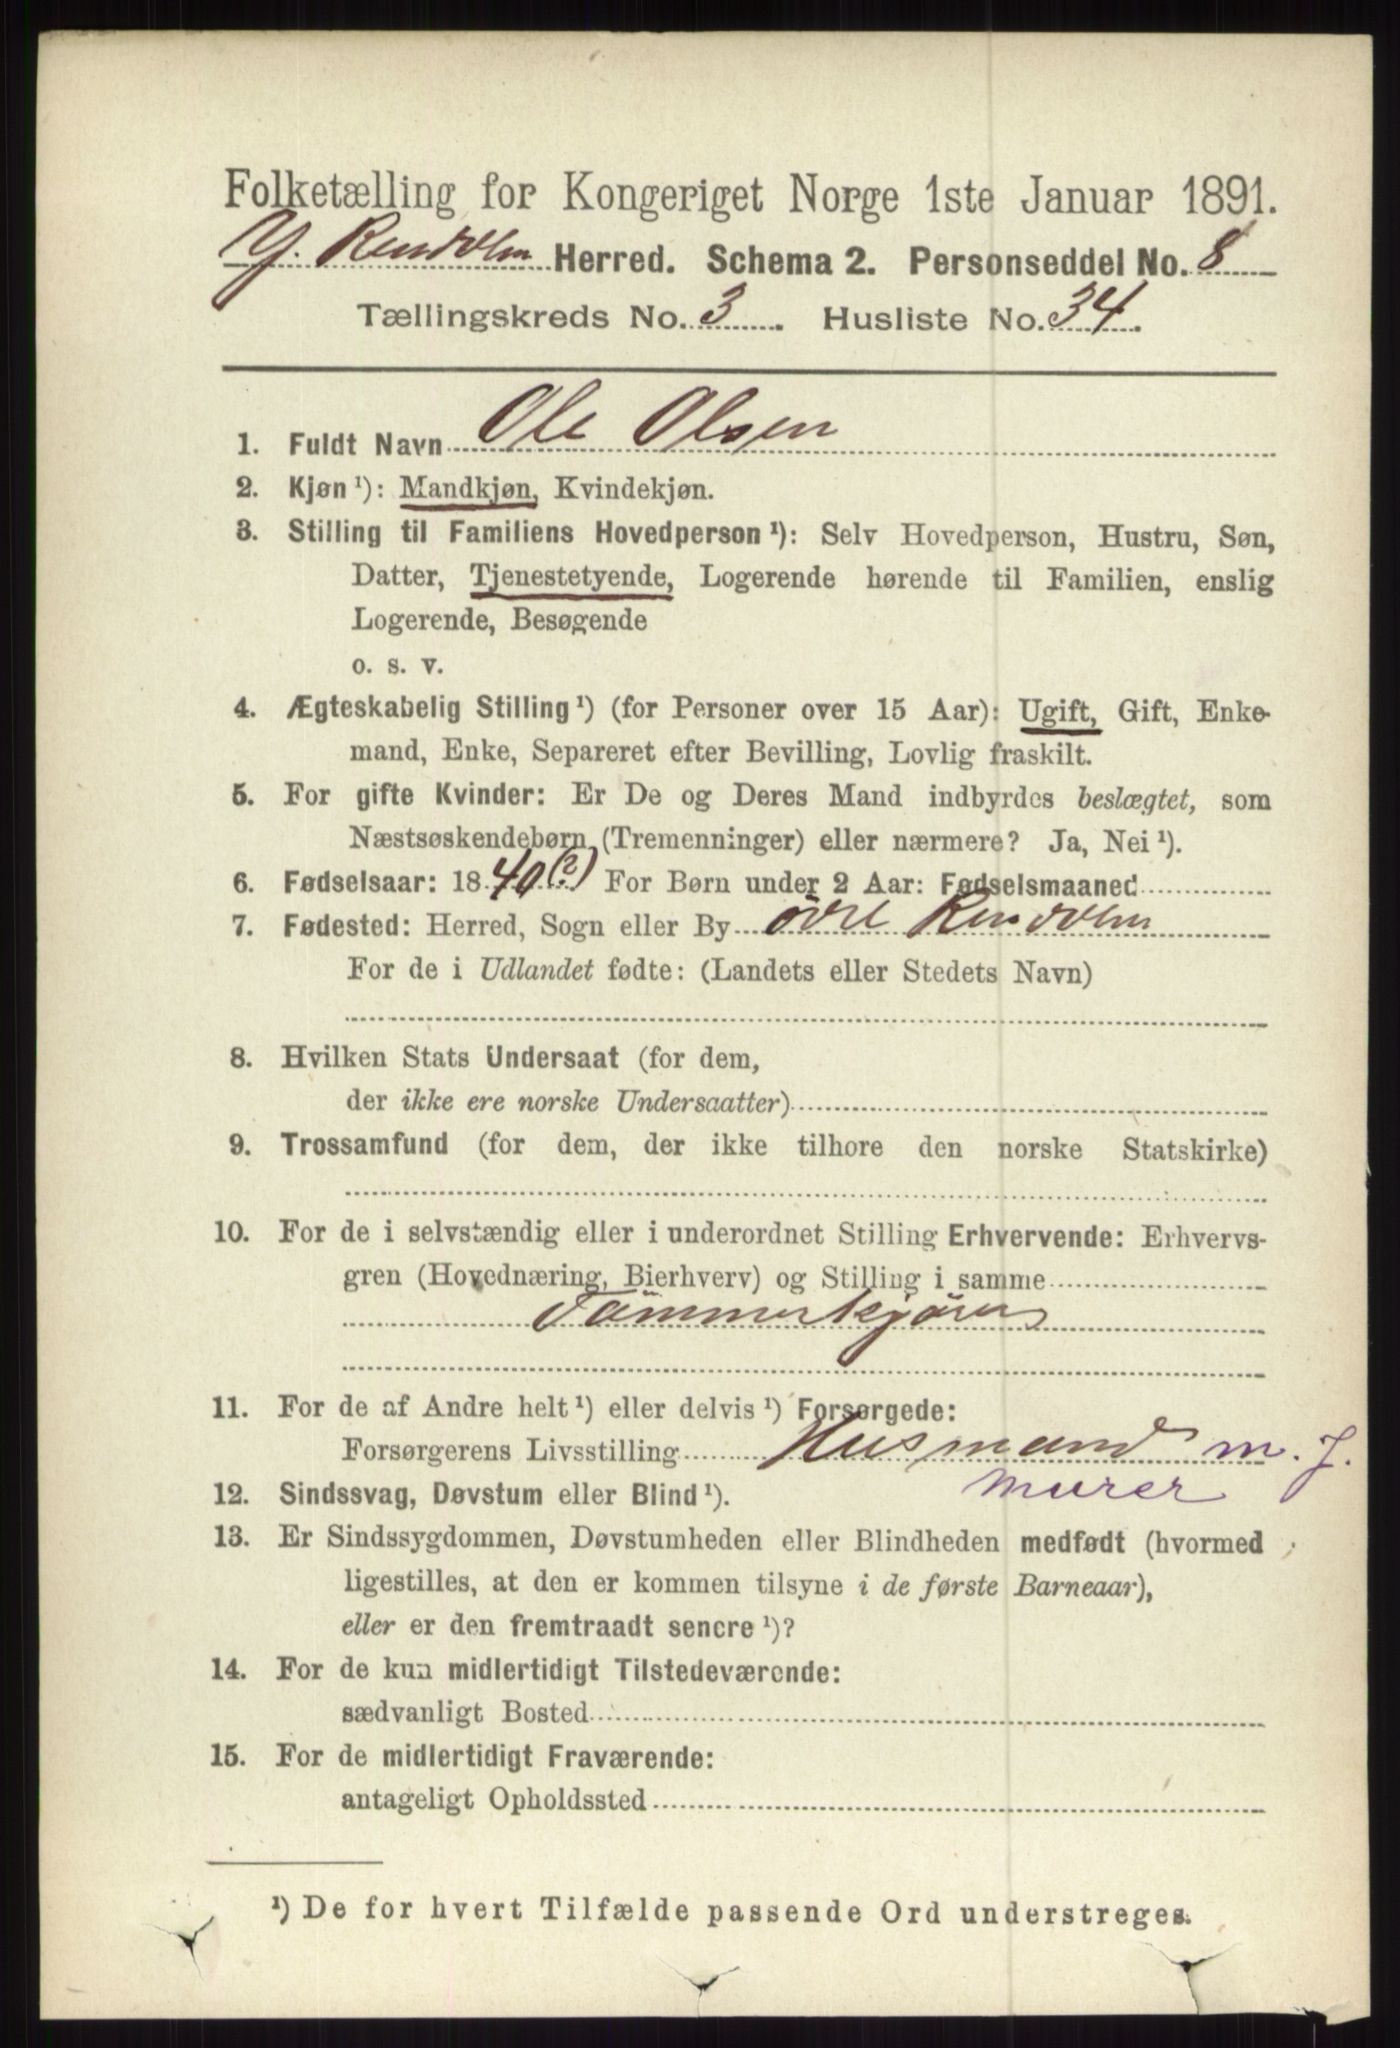 Folketælling for Kongeriget Norge 1ste Januar 1891.
Y. Rendalen Herred. Schema 2. Personseddel No. 8
Tællingskreds No. 3. Husliste No. 34.
1. Fuldt Navn Ole Olsen
2. Kjøn ¹): Mandkjøn, Kvindekjøn.
3. Stilling til Familiens Hovedperson ¹): Selv Hovedperson, Hustru, Søn,
Datter, Tjenestetyende, Logerende hørende til Familien, enslig
Logerende, Besøgende
o. s. v.
4. Ægteskabelig Stilling ¹) (for Personer over 15 Aar): Ugift, Gift, Enke-
mand, Enke, Separeret efter Bevilling, Lovlig fraskilt.
5. For gifte Kvinder: Er De og Deres Mand indbyrdes beslægtet, som
Næstsøskendebørn (Tremenninger) eller nærmere? Ja, Nei ¹).
6. Fødselsaar: 1840(?) For Børn under 2 Aar: Fødselsmaaned
7. Fødested: Herred, Sogn eller By Øvre Rendalen
For de i Udlandet fødte: (Landets eller Stedets Navn)
8. Hvilken Stats Undersaat (for dem,
der ikke ere norske Undersaatter)
9. Trossamfund (for dem, der ikke tilhore den norske Statskirke)
10. For de i selvstændig eller i underordnet Stilling Erhvervende: Erhvervs-
gren (Hovednæring, Bierhverv) og Stilling i samme
Tømmerkjører
11. For de af Andre helt ¹) eller delvis ¹) Forsørgede:
Forsørgerens Livsstilling Husmand m. J.
Murer
12. Sindssvag, Døvstum eller Blind ¹).
13. Er Sindssygdommen, Døvstumheden eller Blindheden medfødt (hvormed
ligestilles, at den er kommen tilsyne i de første Barneaar),
eller er den fremtraadt senere ¹)?
14. For de kun midlertidigt Tilstedeværende:
sædvanligt Bosted
15. For de midlertidigt Fraværende:
antageligt Opholdssted
¹) De for hvert Tilfælde passende Ord understreges.